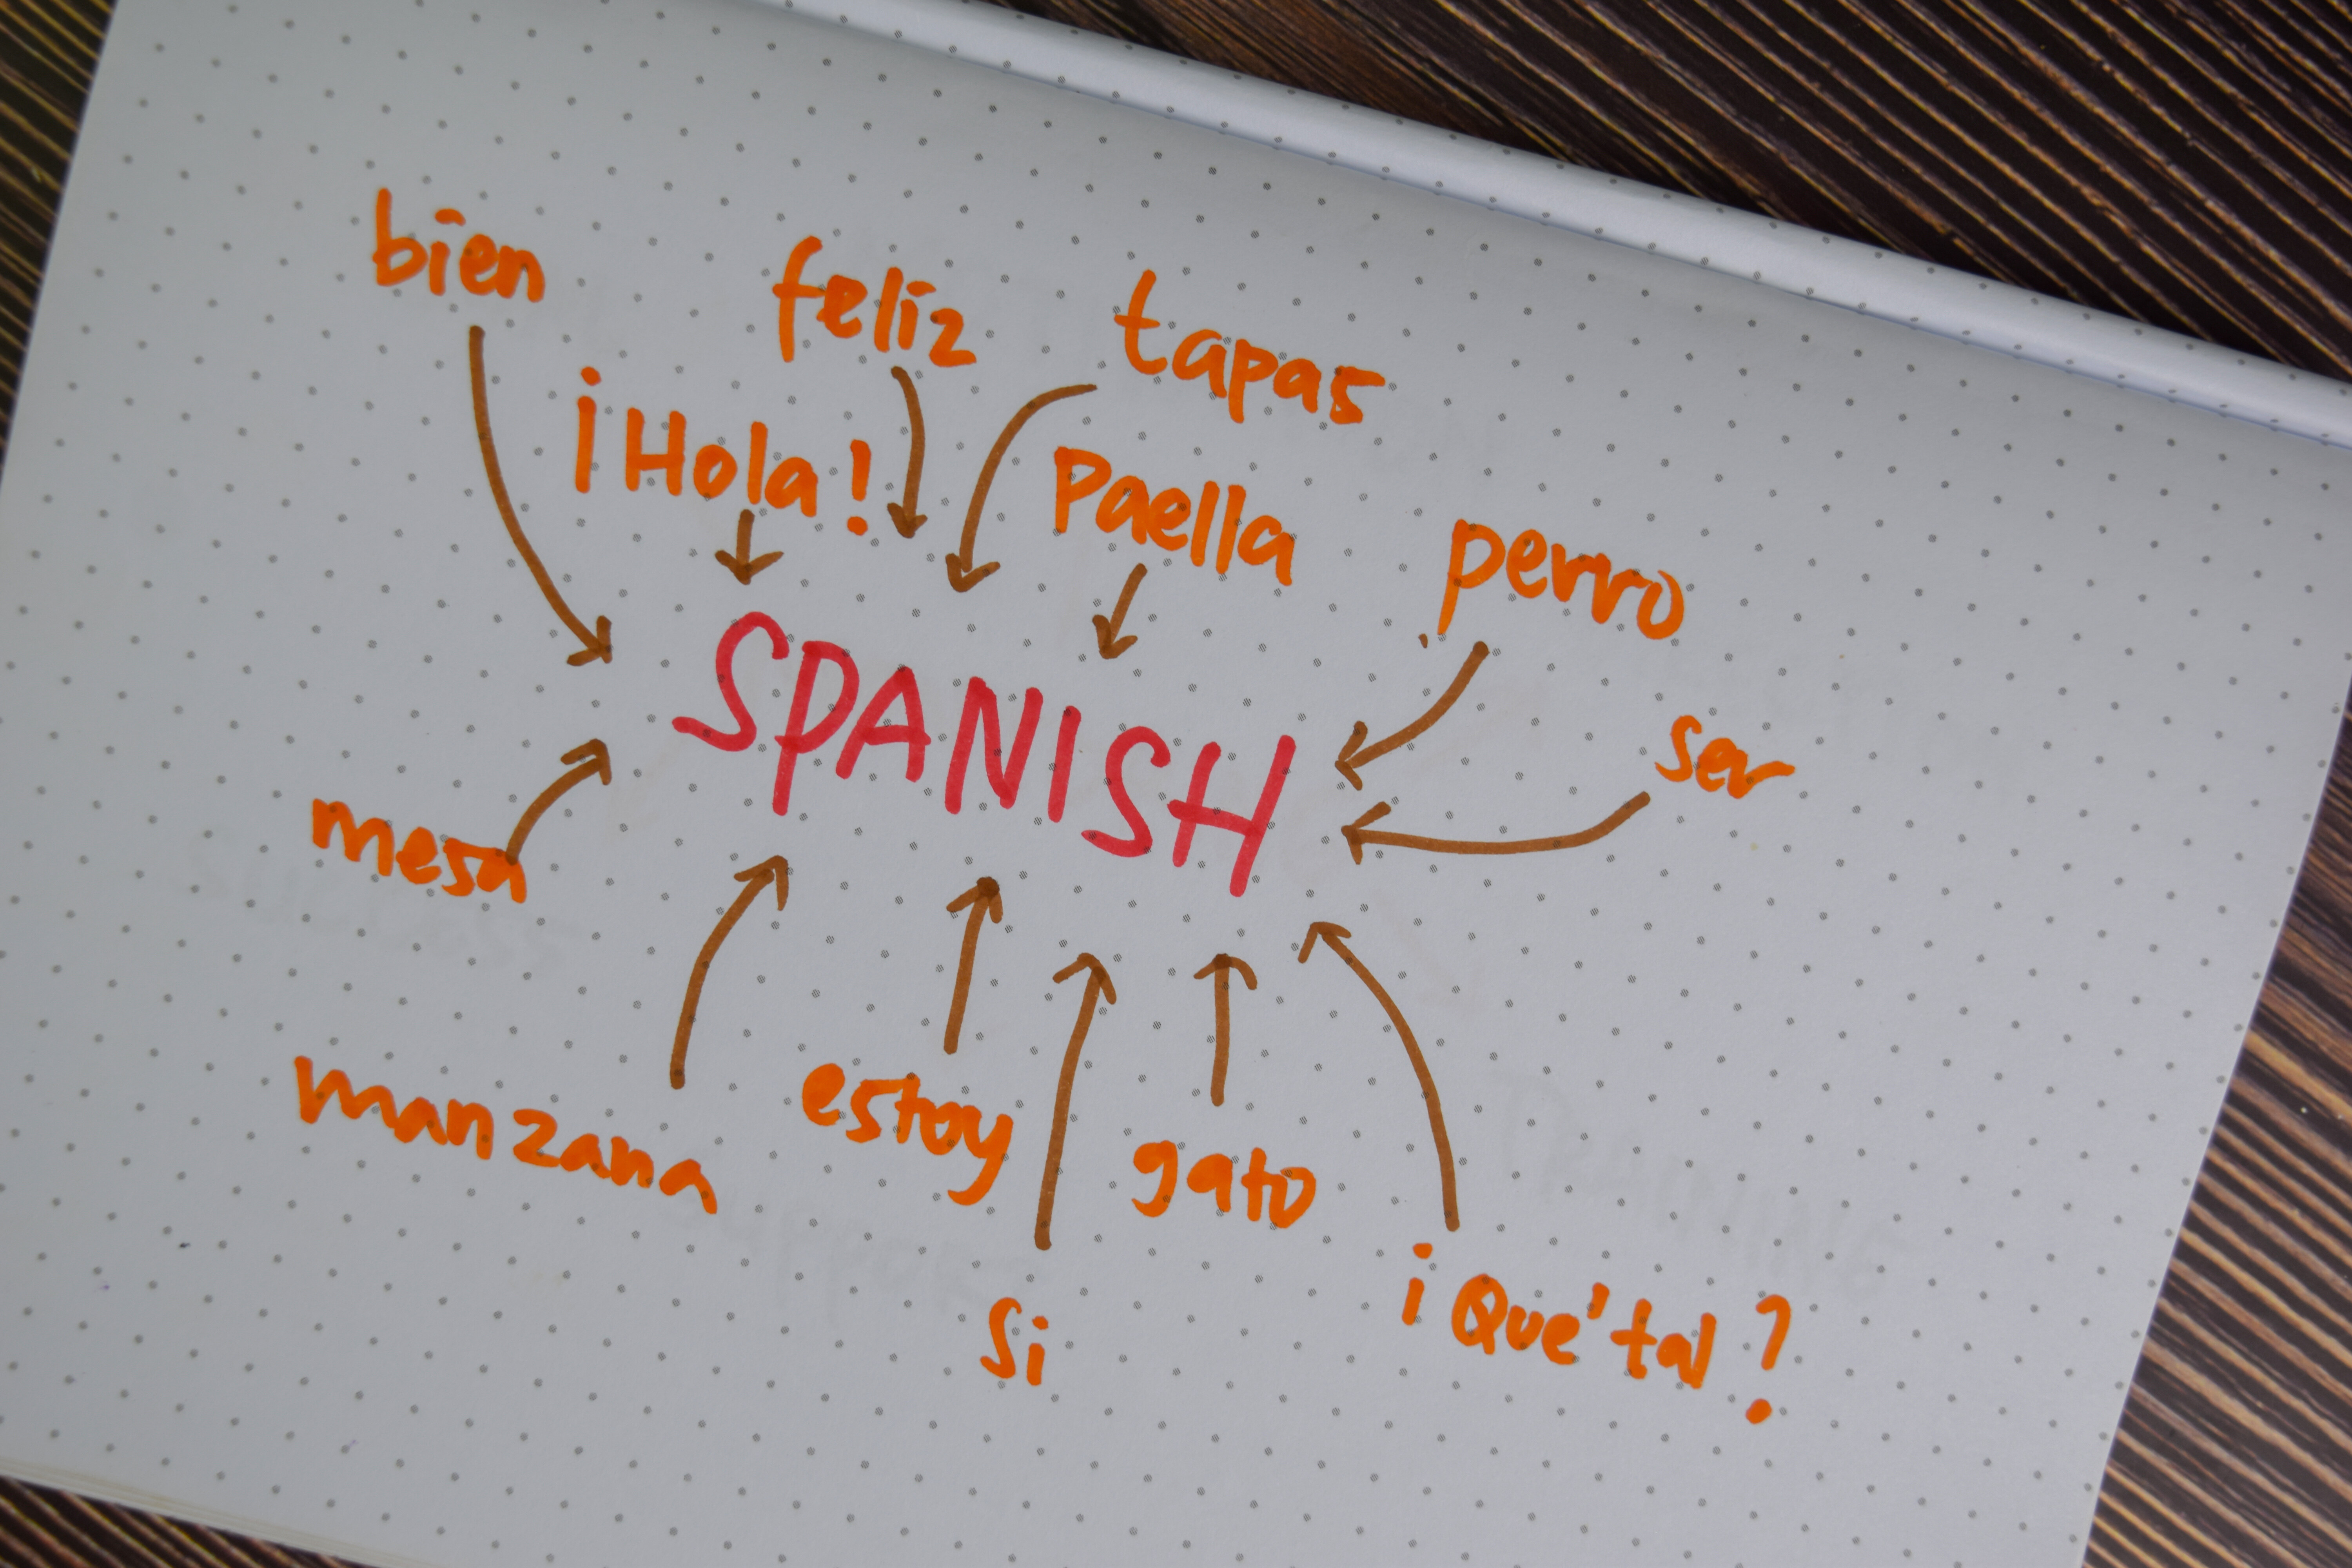 bien
feliz
tapas
¡Hola!
Paella
perro
SPANISH
ser
mesa
manzana
estoy
gato
Si
¡Qué tal?